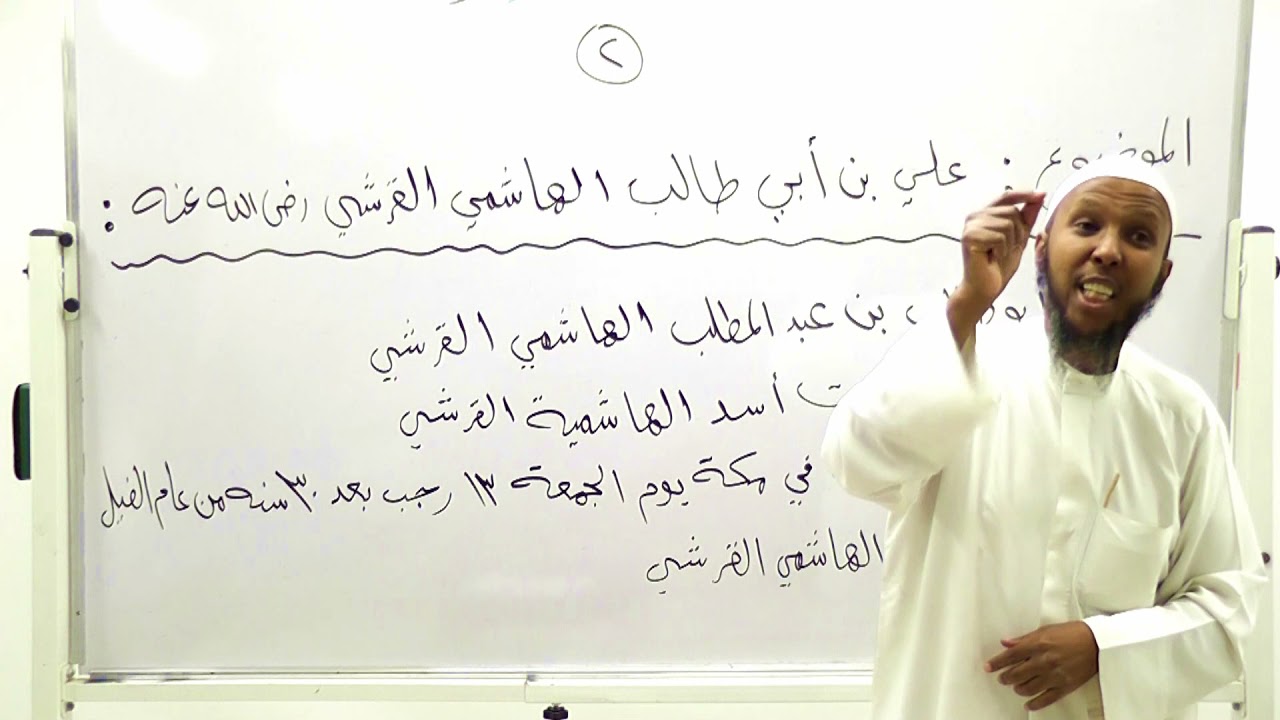 ٢
الموضوع : علي بن أبي طالب الهاشمي القرشي رضى الله عنه :
بن عبد المطلب الهاشمي القرشي
أسد الهاشمية القرشي
في مكة يوم الجمعة ١٣ رجب بعد ٣٠ سنه من عام الفيل
الهاشمي القرشي